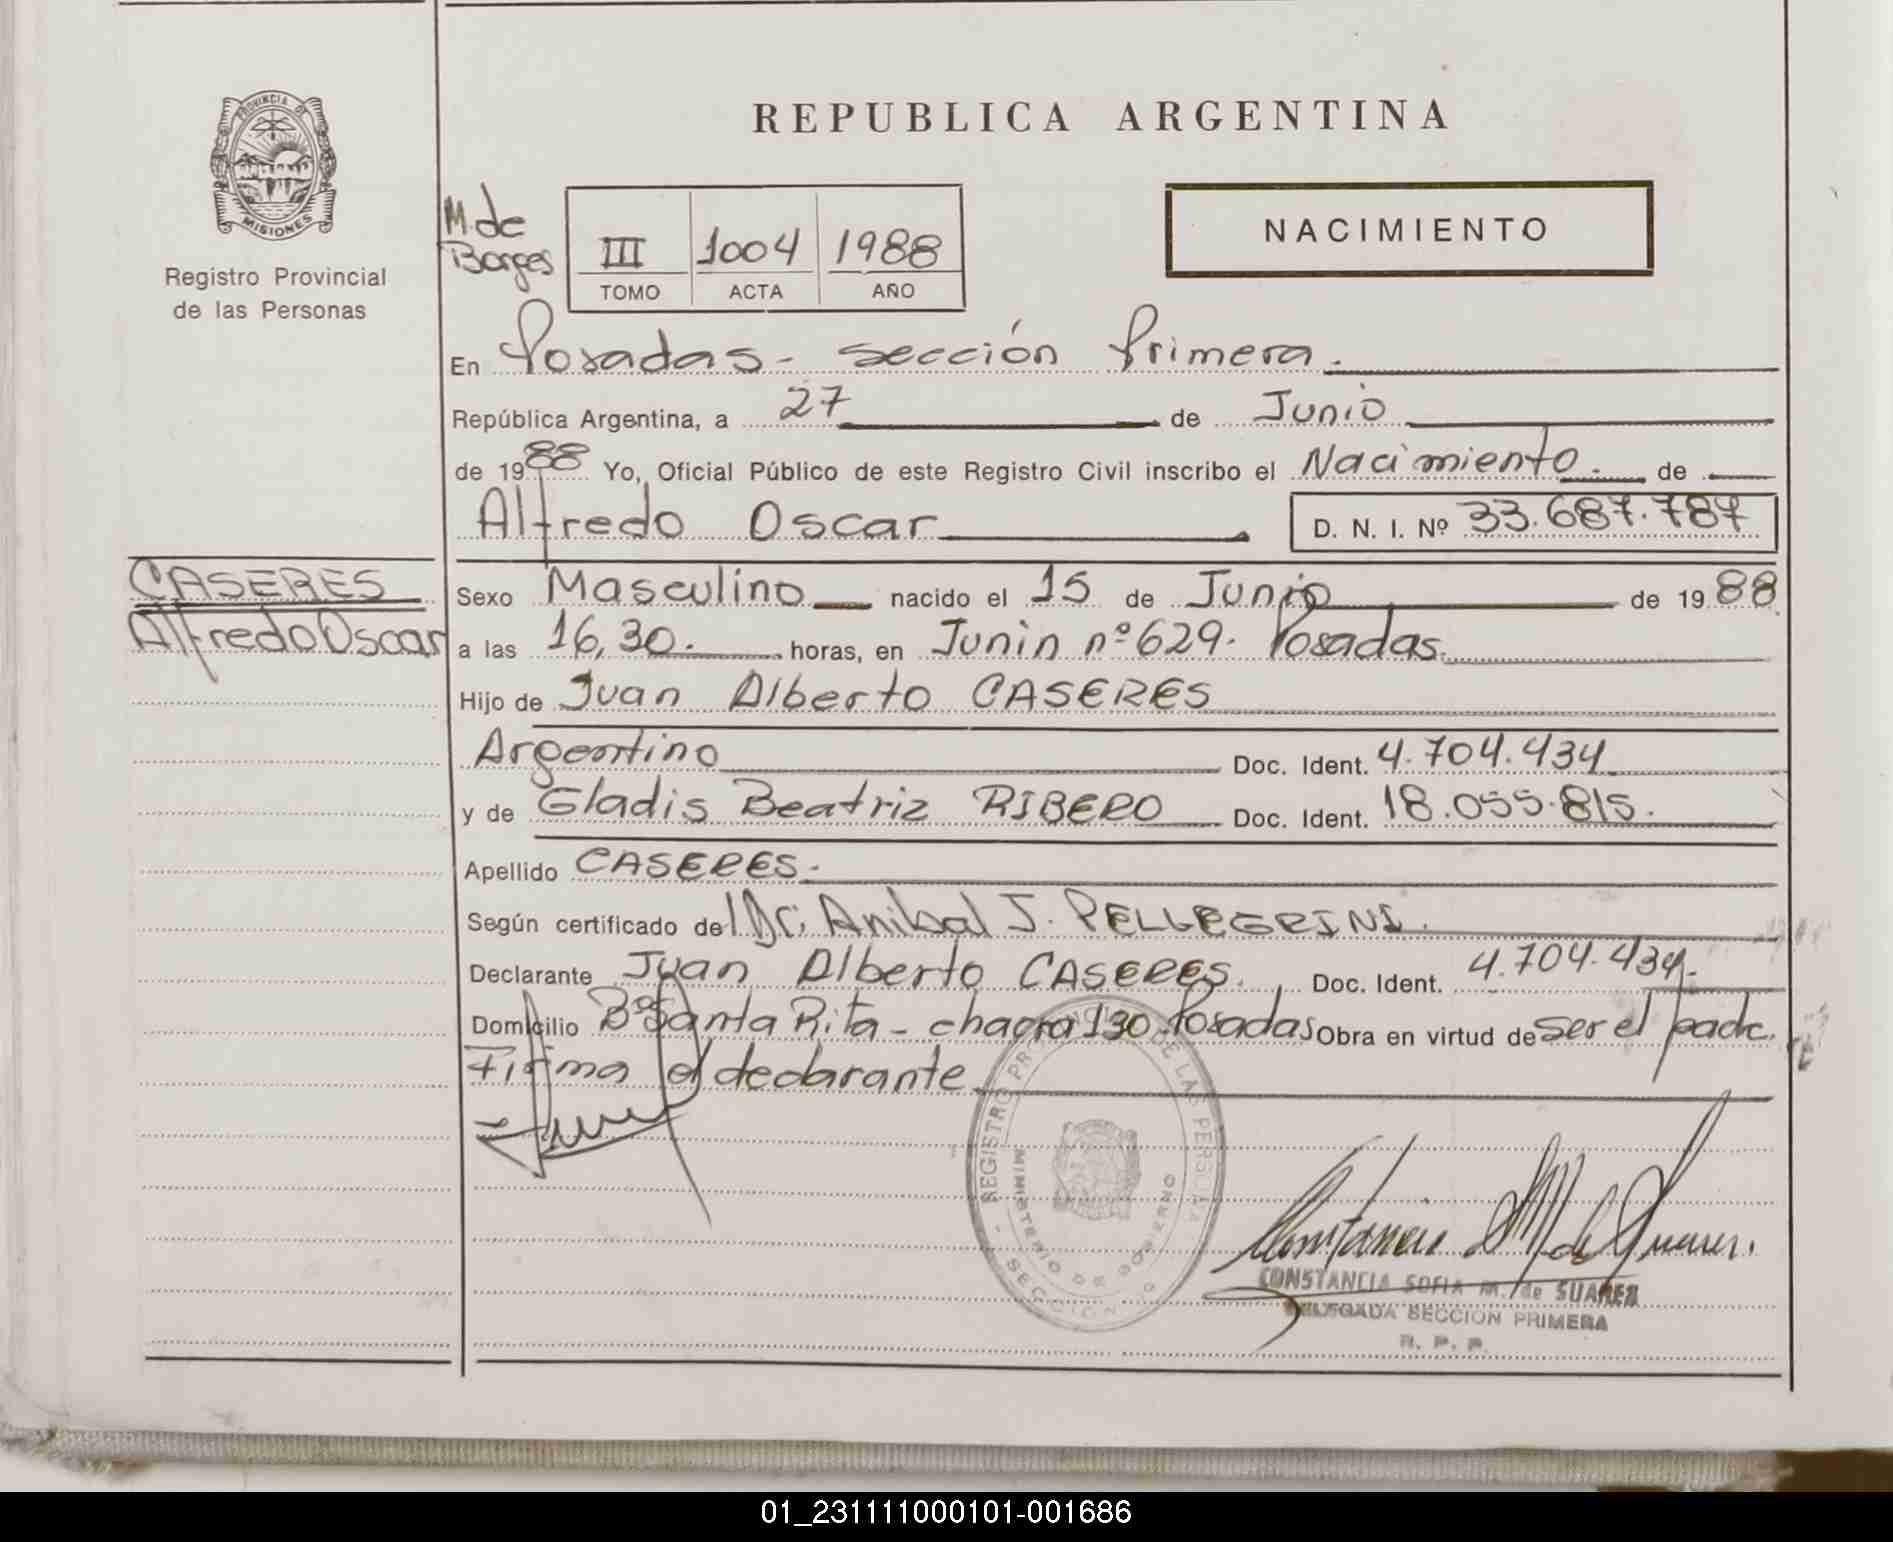 REPUBLICA ARGENTINA
PROVINCIA DE
MISIONES
Registro Provincial
de las Personas
NACIMIENTO
M. de
Borges
III 1004 1988
TOMO ACTA AÑO
En Posadas - sección Primera.
República Argentina, a 27 de Junio
de 1988 Yo, Oficial Público de este Registro Civil inscribo el Nacimiento. de
Alfredo Oscar D. N. I. Nº 33.687.787
CASERES
Alfredo Oscar
Sexo Masculino nacido el 15 de Junio de 1988
a las 16,30. horas, en Junin nº 629. Posadas.
Hijo de Juan Alberto CASERES
Argentino Doc. Ident. 4.704.434
y de Gladis Beatriz RIBERO Doc. Ident. 18.055.815.
Apellido CASERES.
Según certificado del Dr. Anibal J. PELLEGRINI.
Declarante Juan Alberto CASERES. Doc. Ident. 4.704.434.
Domicilio Bº Santa Rita - chacra 130. Posadas Obra en virtud de ser el padre.
Firma el declarante.
REGISTRO PROVINCIAL DE LAS PERSONAS
MINISTERIO DE GOBIERNO
SECCION
CONSTANCIA SOFIA M. de SUAREZ
DELEGADA SECCION PRIMERA
R. P. P.
01_231111000101-001686